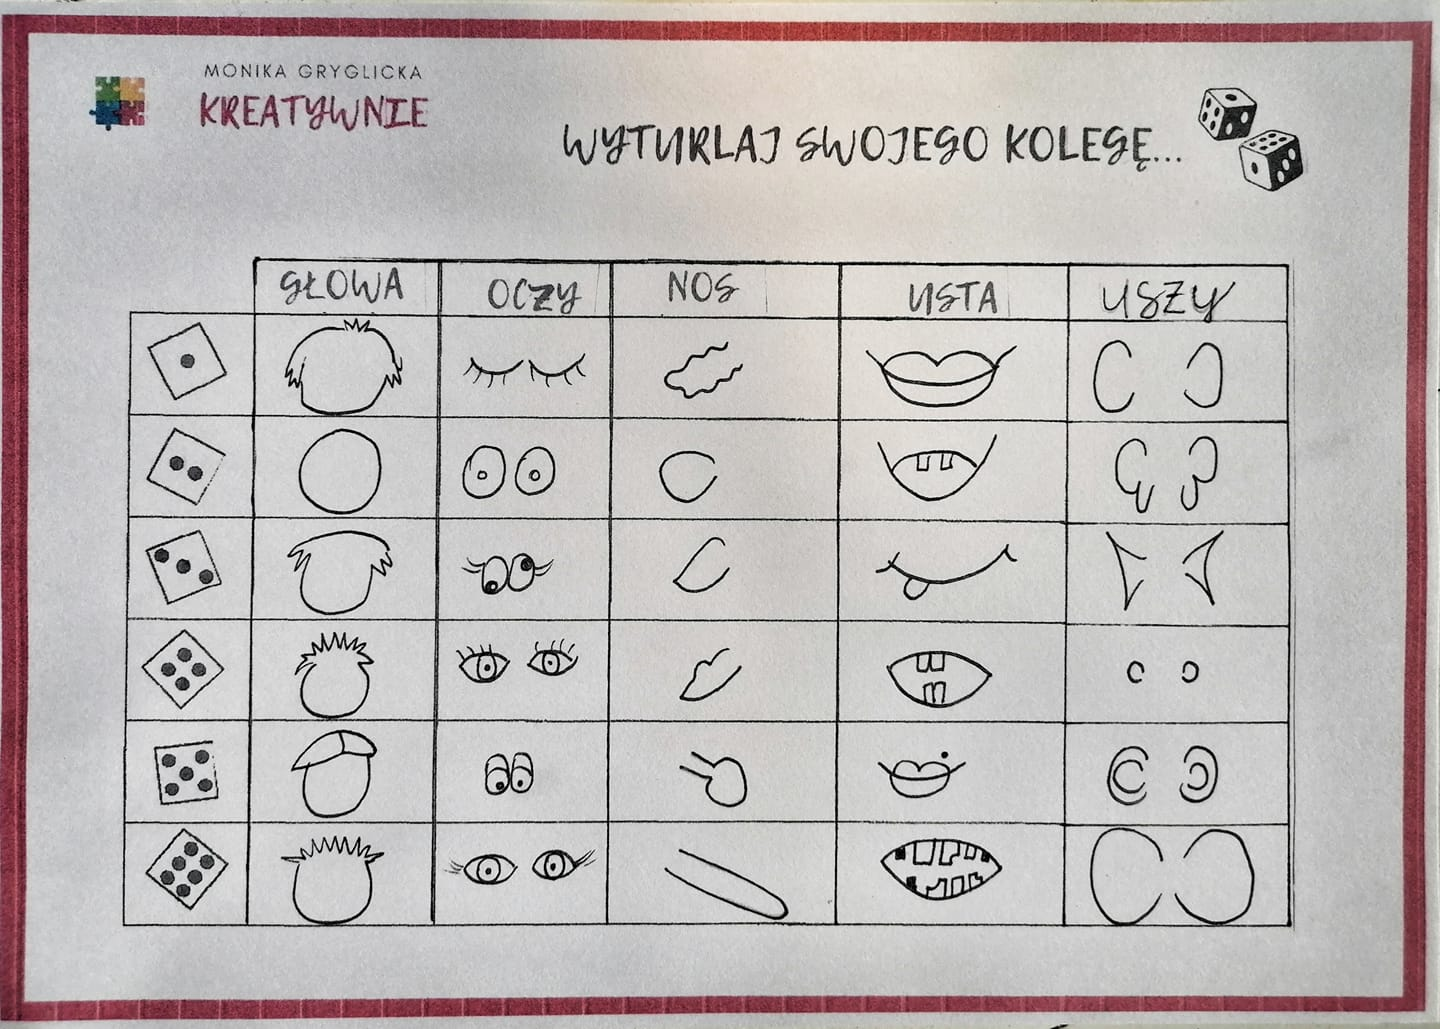 MONIKA GRYGLICKA
KREATYWNIE
WYTURLAJ SWOJEGO KOLEGĘ...
GŁOWA OCZY NOS USTA USZY